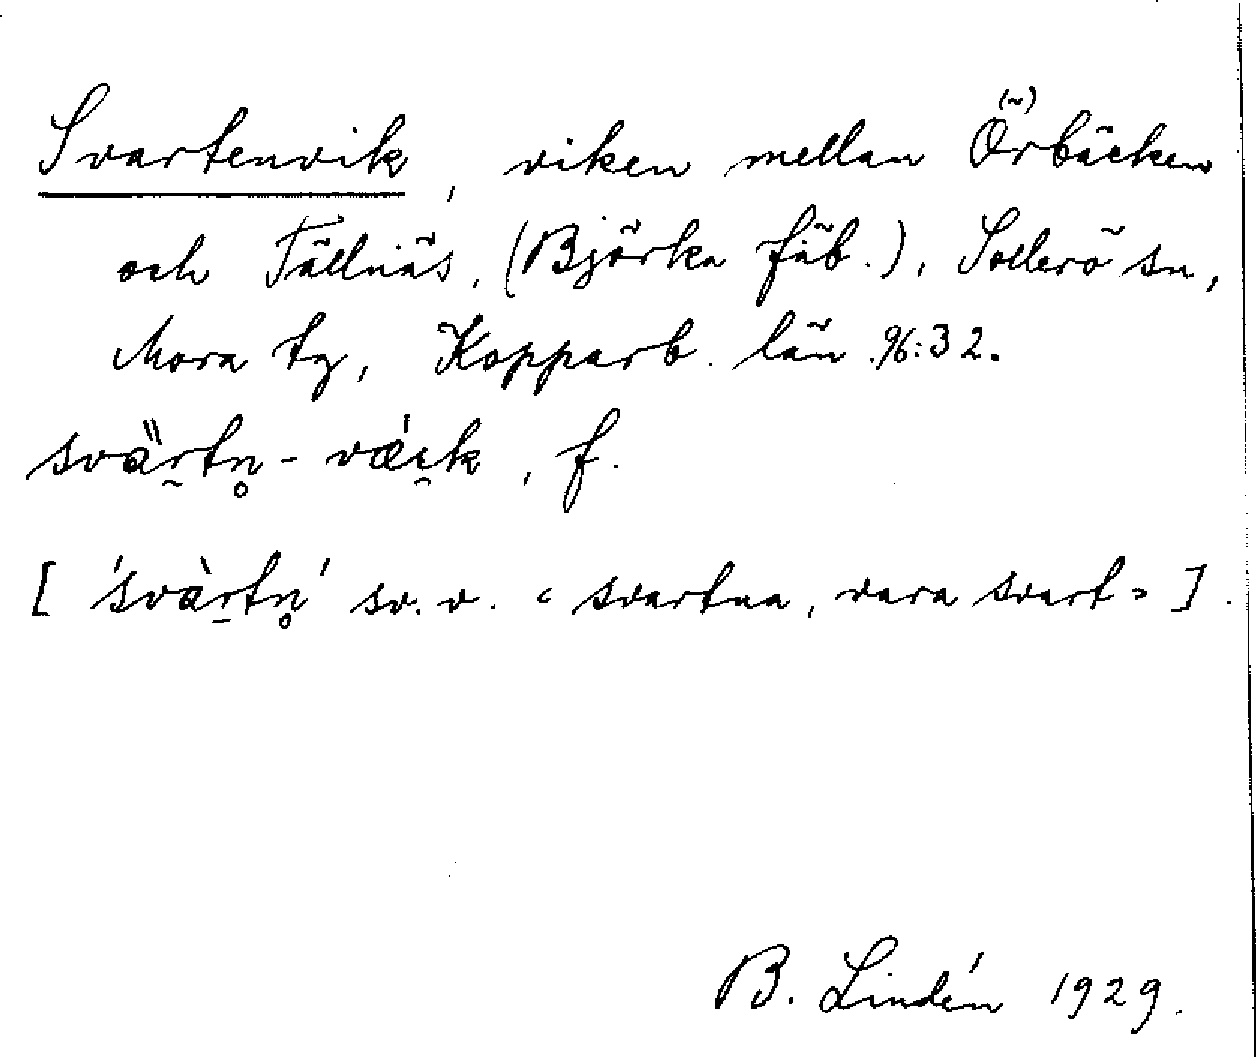 Svartenvik, viken mellan Örbäcken
och Tällnäs, (Björka fäb.), Sollerö sn,
Mora tg, Kopparb. län. 96:32.
svàrtn̥ - vǽi̯k, f.
[ 'svàrtn̥' sv. v. « svartna, vara svart » ].
B. Lindén 1929.